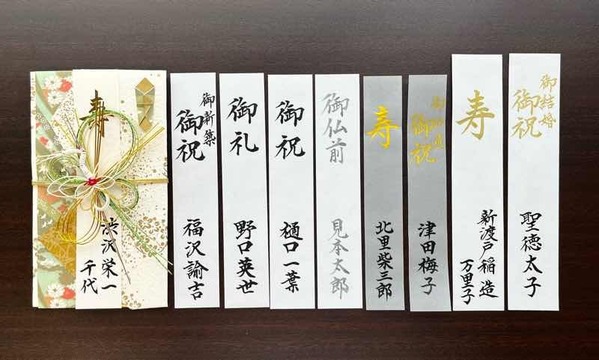 寿
渋沢栄一
千代
御新築
御祝
福沢諭吉
御礼
野口英世
御祝
樋口一葉
御仏前
見本太郎
寿
北里柴三郎
御祝
津田梅子
寿
新渡戸稲造
万里子
御結婚
御祝
聖徳太子